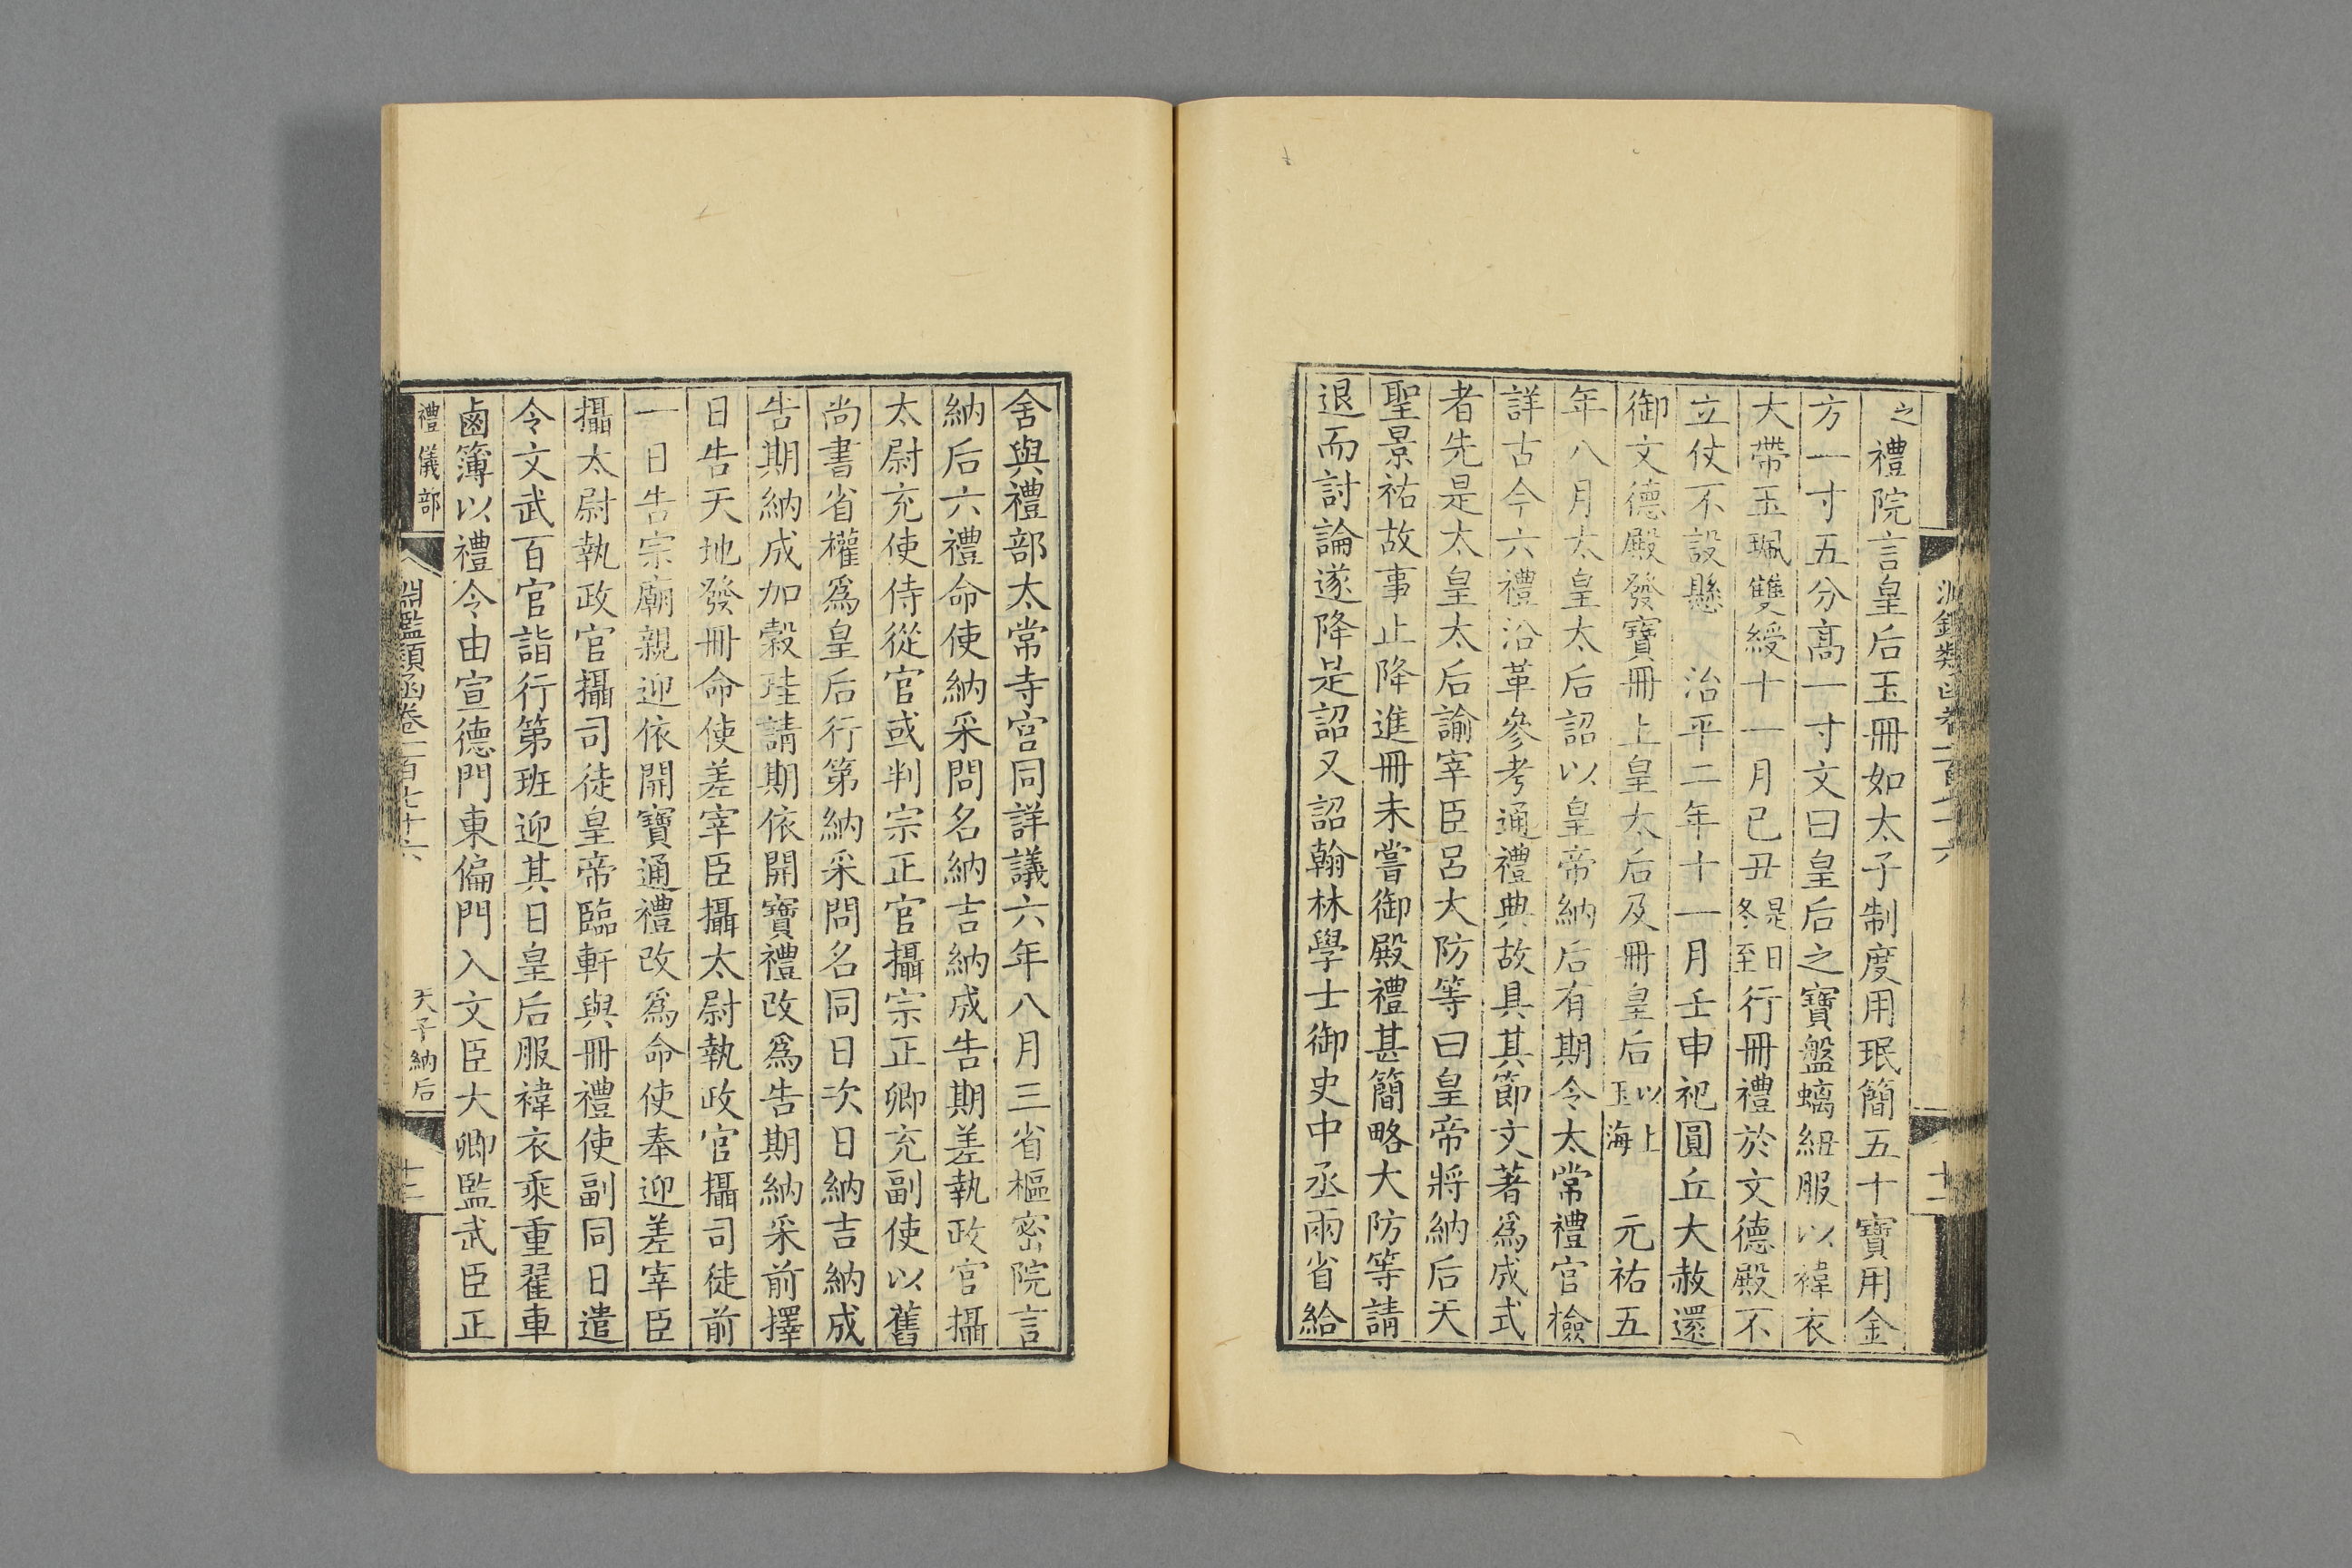 之 禮院言皇后玉冊如太子制度用珉簡五十寶用金
方一寸五分高一寸文曰皇后之寶盤螭紐服以褘衣
大帶玉珮雙綬十一月已丑是日冬至行冊禮於文德殿不
立仗不設懸 治平二年十一月壬申祀圓丘大赦還
御文德殿發寶冊上皇太后及冊皇后以上玉海 元祐五
年八月太皇太后詔以皇帝納后有期令太常禮官檢
詳古今六禮沿革參考通禮典故具其節文著爲成式
者先是太皇太后諭宰臣呂大防等曰皇帝將納后天
聖景祐故事止降進冊未嘗御殿禮甚簡略大防等請
退而討論遂降是詔又詔翰林學士御史中丞兩省給
舍與禮部太常寺官同詳議六年八月三省樞密院言
納后六禮命使納采問名納吉納成告期差執政官攝
太尉充使侍從官或判宗正官攝宗正卿充副使以舊
尚書省權爲皇后行第納采問名同日次日納吉納成
告期納成加穀珪請期依開寶禮改爲告期納采前擇
日告天地發冊命使差宰臣攝太尉執政官攝司徒前
一日告宗廟親迎依開寶通禮改爲命使奉迎差宰臣
攝太尉執政官攝司徒皇帝臨軒與冊禮使副同日遣
令文武百官詣行第班迎其日皇后服褘衣乘重翟車
鹵簿以禮令由宣德門東偏門入文臣大卿監武臣正
禮儀部
淵鑑類函卷一百七十六
天子納后
十二